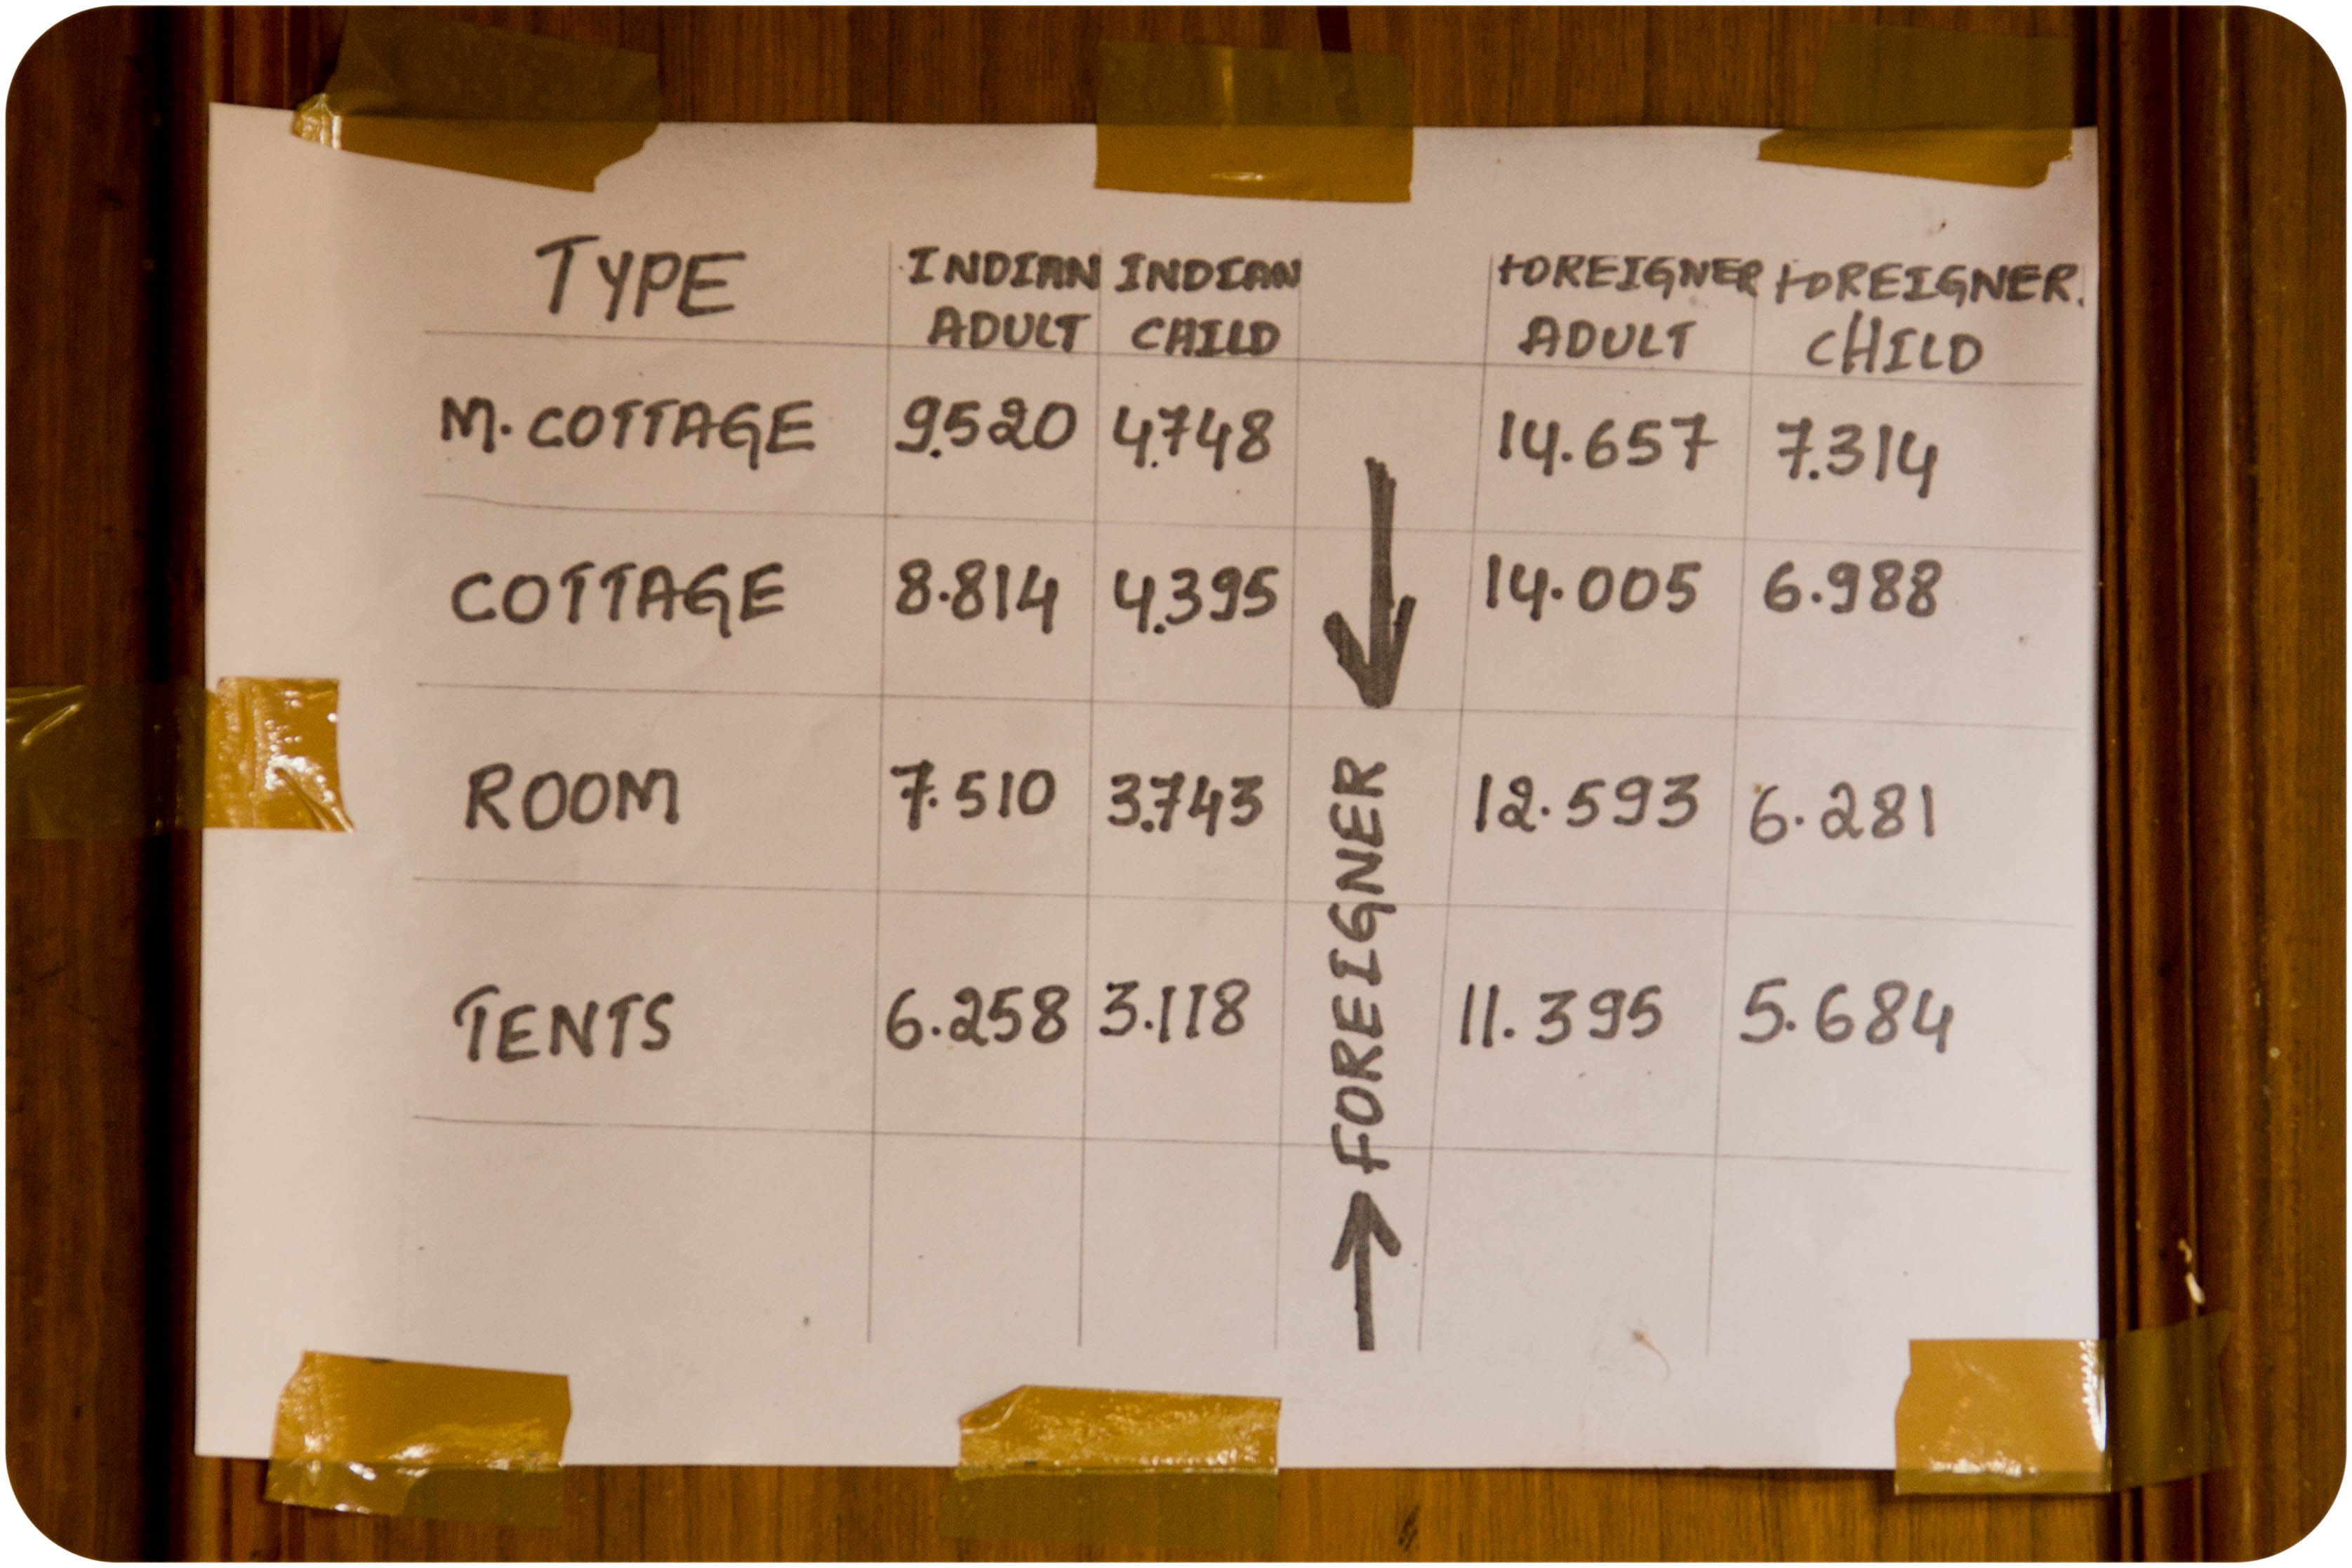 TYPE INDIAN ADULT INDIAN CHILD FOREIGNER ADULT FOREIGNER. CHILD
M. COTTAGE 9.520 4.748 14.657 7.314
COTTAGE 8.814 4.395 14.005 6.988
ROOM 7.510 3.743 12.593 6.281
TENTS 6.258 3.118 11.395 5.684
→ FOREIGNER ←